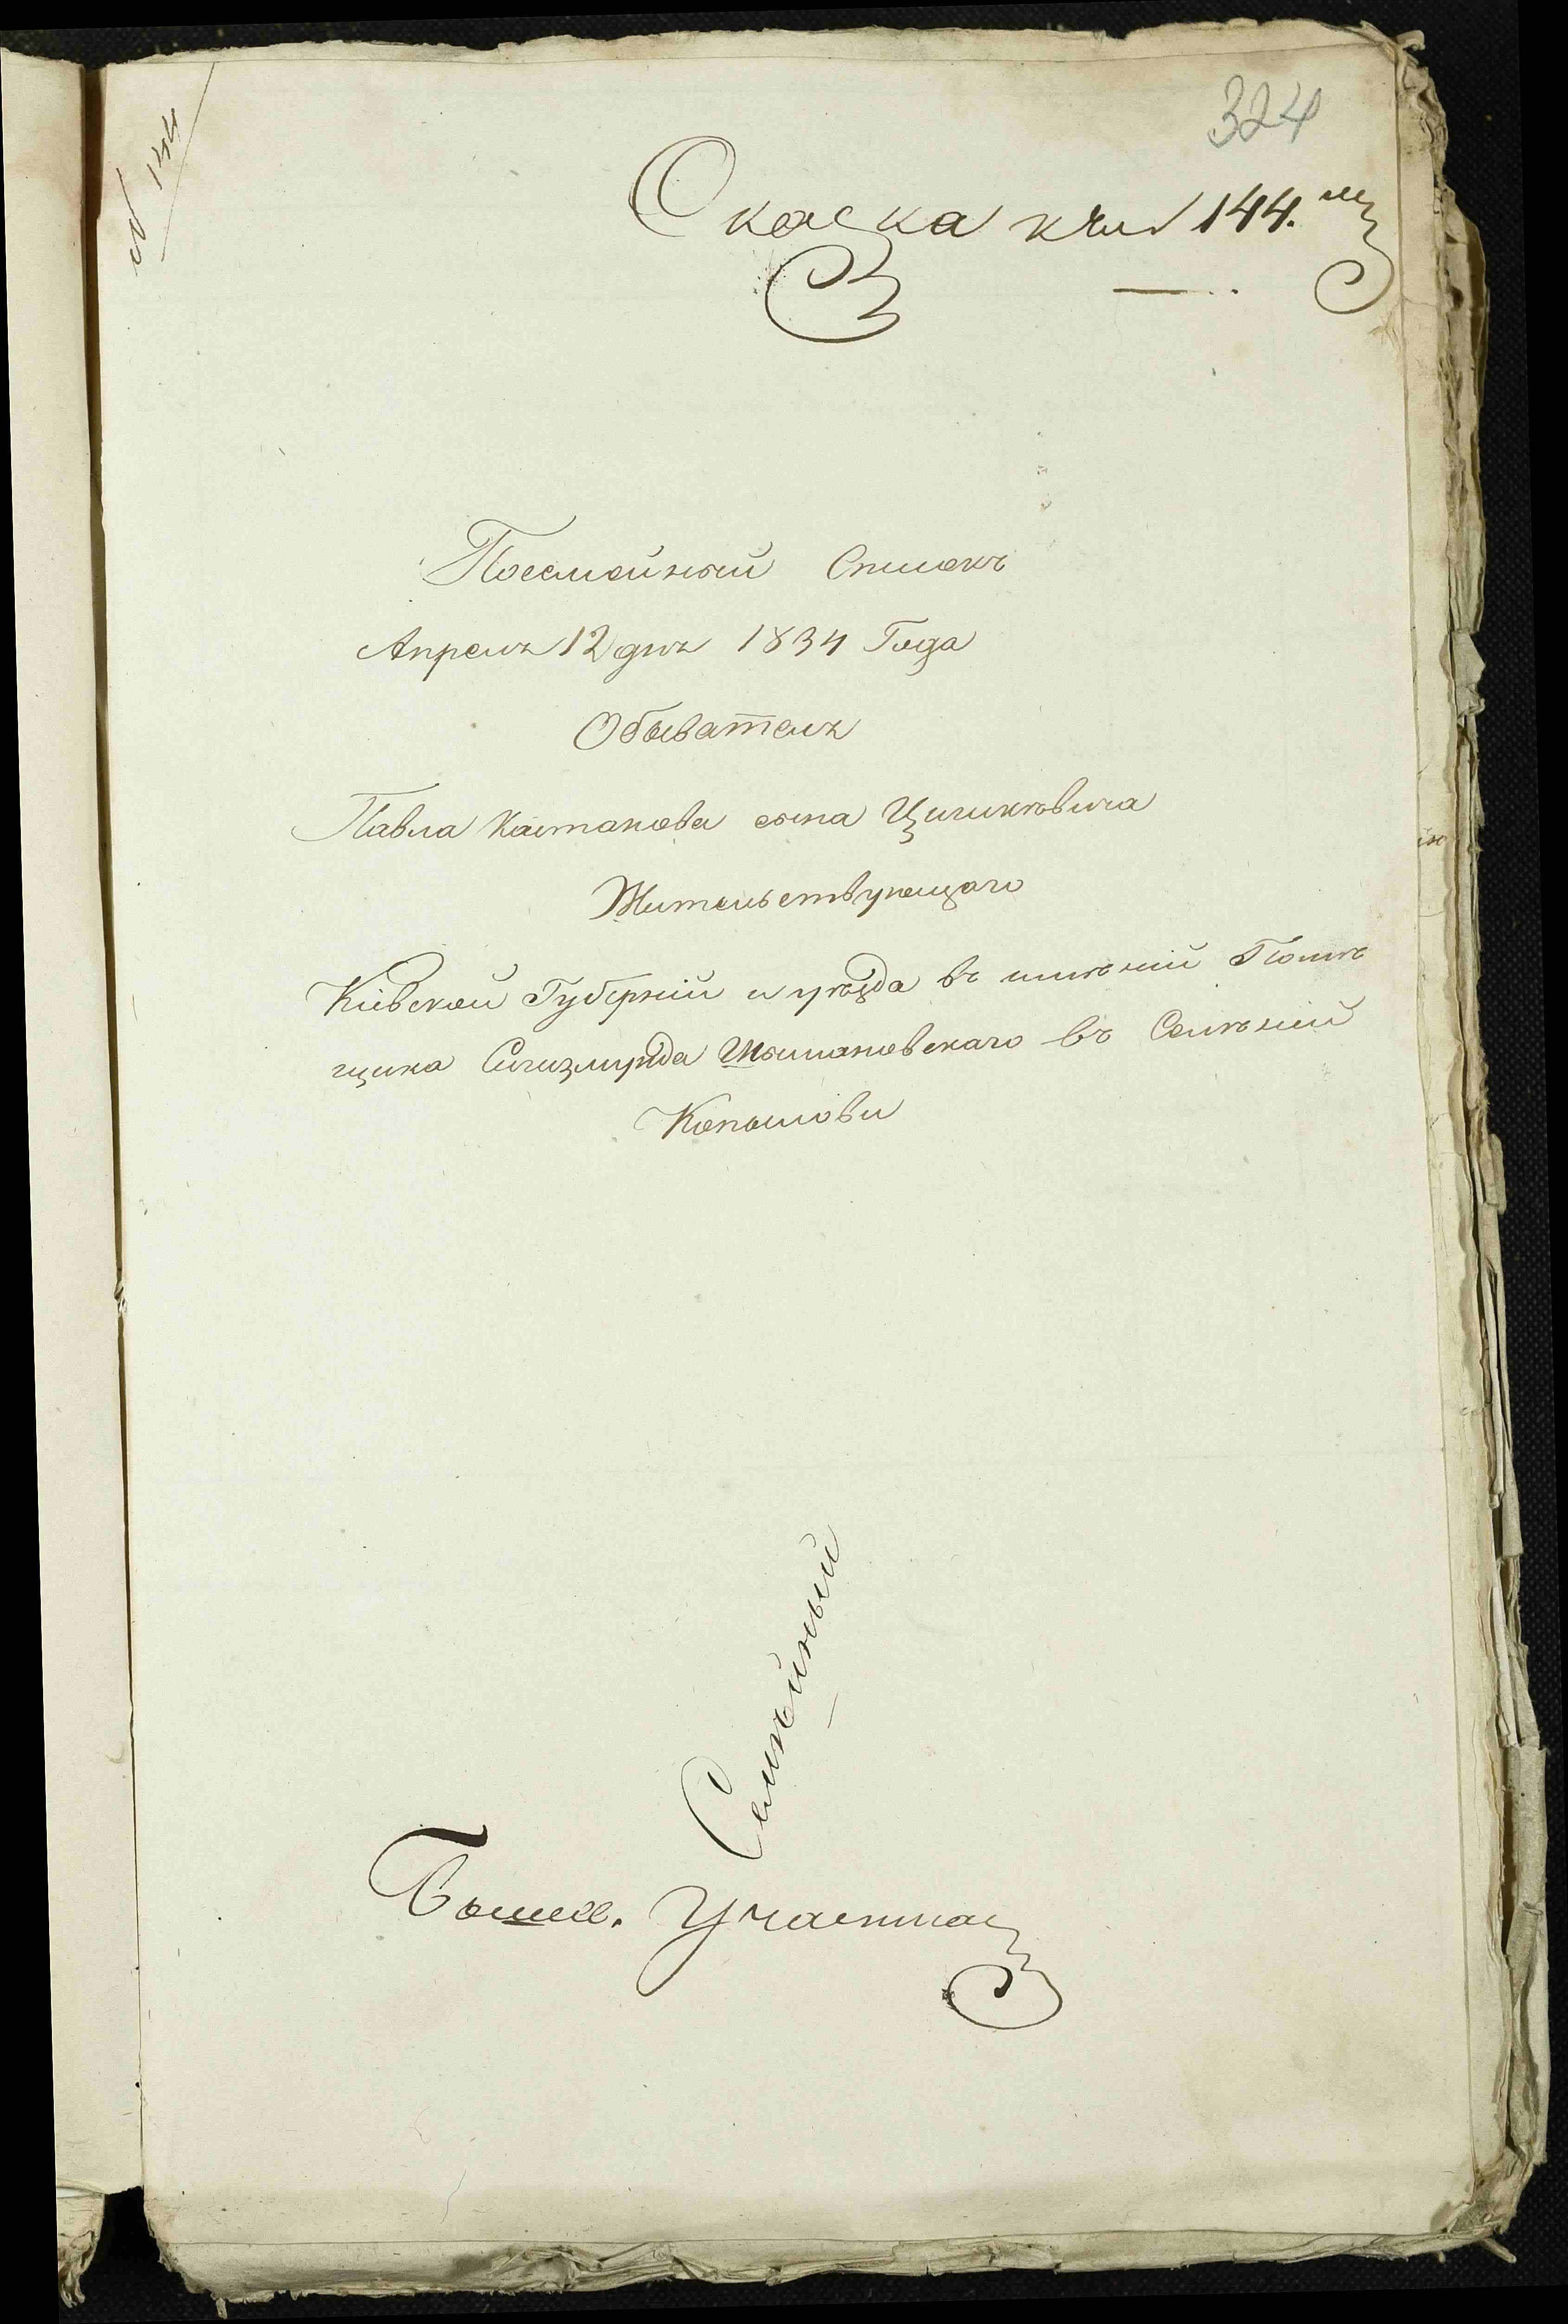 324
№ 144
Скаска к № 144.му
Посемейный Списокъ
Апреля 12 дня 1834 Года
Обывателя
Павла Каетанова сына
Жительствующаго
Кіевской Губерніи и уѣзда въ имѣніи Помѣ
щика Сигизмунда Шымановскаго въ Селѣніи
Копылови
Семѣйный
Бышев. Участка